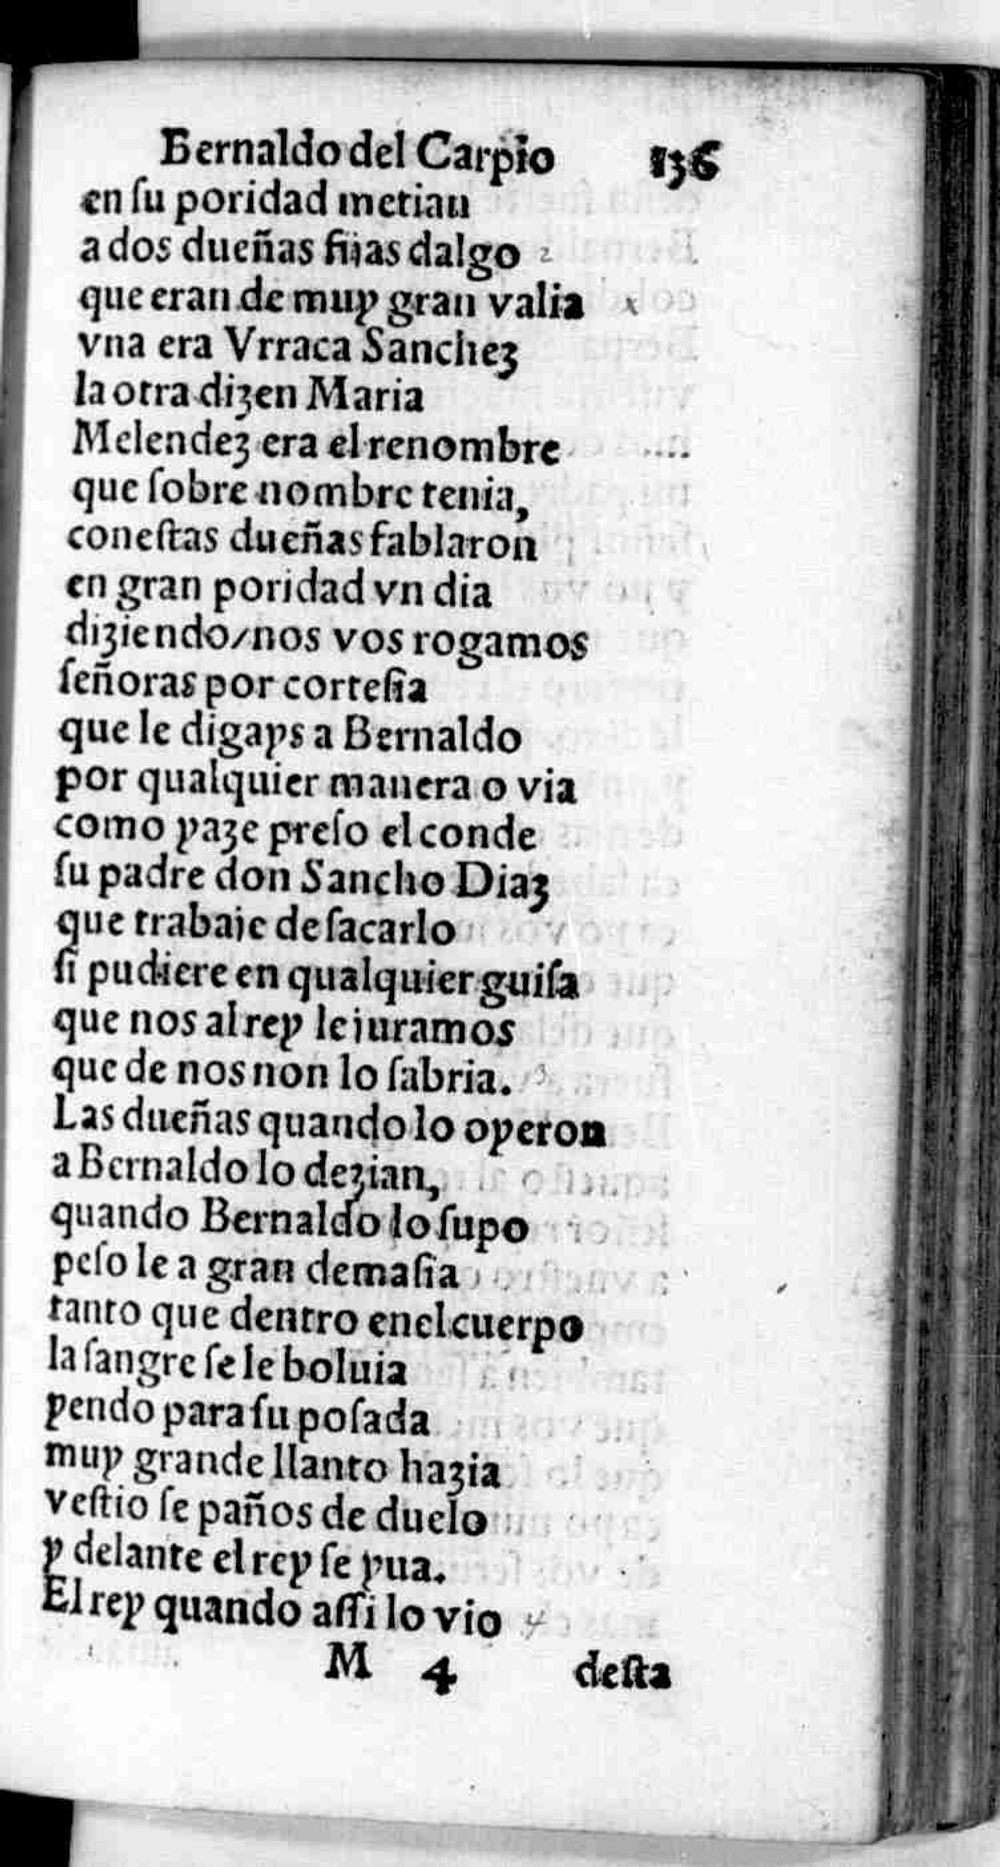 Bernaldo del Carpio 136
en ſu poridad metian
a dos dueñas fijas dalgo
que eran de muy gran valia
vna era Vrraca Sanchez
la otra dizen Maria
Melendez era el renombre
que ſobre nombre tenia,
coneſtas dueñas fablaron
en gran poridad vn dia
diziendo/nos vos rogamos
ſeñoras por corteſia
que le digays a Bernaldo
por qualquier manera o via
como yaze preſo el conde
ſu padre don Sancho Diaz
que trabaje de ſacarlo
ſi pudiere en qualquier guiſa
que nos al rey le juramos
que de nos non lo ſabria.
Las dueñas quando lo oyeron
a Bernaldo lo dezian,
quando Bernaldo lo ſupo
peſo le a gran demaſia
tanto que dentro enel cuerpo
la ſangre ſe le boluia
yendo para ſu poſada
muy grande llanto hazia
veſtio ſe paños de duelo
y delante el rey ſe yua.
El rey quando aſſi lo vio
M 4 deſta